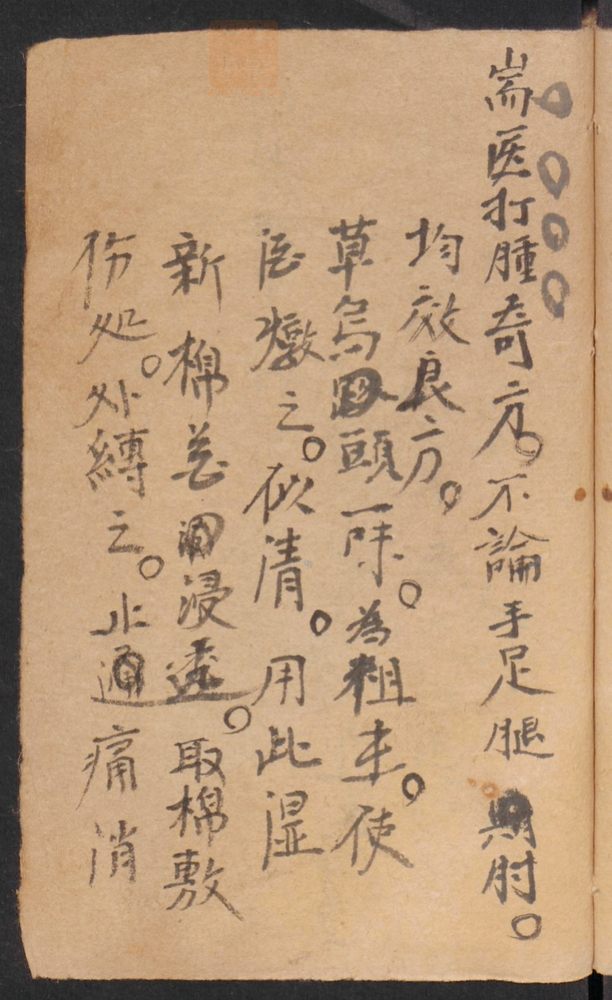 耑医打腫奇方。不論手足腿肘。
均效良方。
草烏頭一味。為粗末。使
燉之。似清。用此湿
新棉花浸透。取棉敷
伤处。外縛之。止痛消